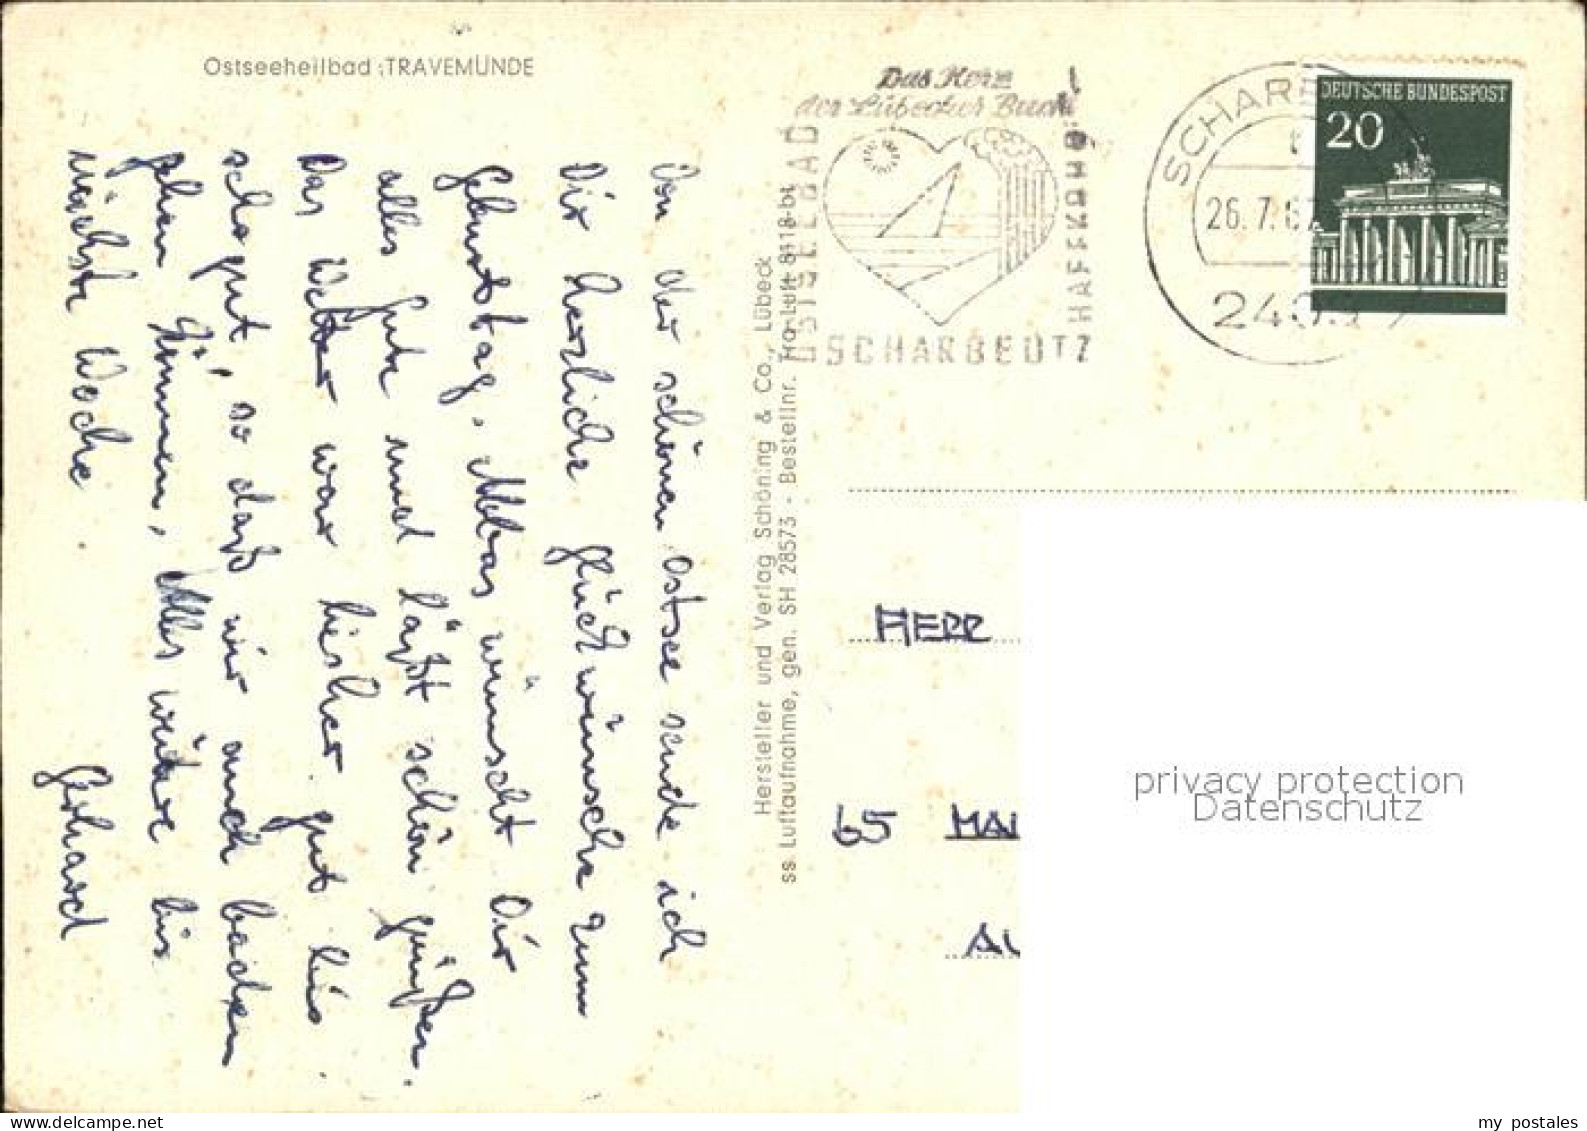 Ostseeheilbad TRAVEMÜNDE
Von der schönen Ostsee sende ich
Dir herzliche Glückwünsche zum
Geburtstag. Alles wünscht Dir
alles Gute und läßt schön grüßen.
Das Wetter war bisher gut bis
sehr gut, so daß wir auch baden
gehen können. Alles weitere bis
nächste Woche.
Gerhard
Hersteller und Verlag Schöning & Co., Lübeck
ss Luftaufnahme, gen. SH 28573 - Bestellnr. Tra Luft 8618 bt
Das Herz
der Lübecker Bucht
OSTSEEBAD
SCHARBEUTZ
HAFFKRUG
SCHARB
26.7.67
2409
DEUTSCHE BUNDESPOST
20
HERR
65 MAI
AU
privacy protection
Datenschutz
my postales